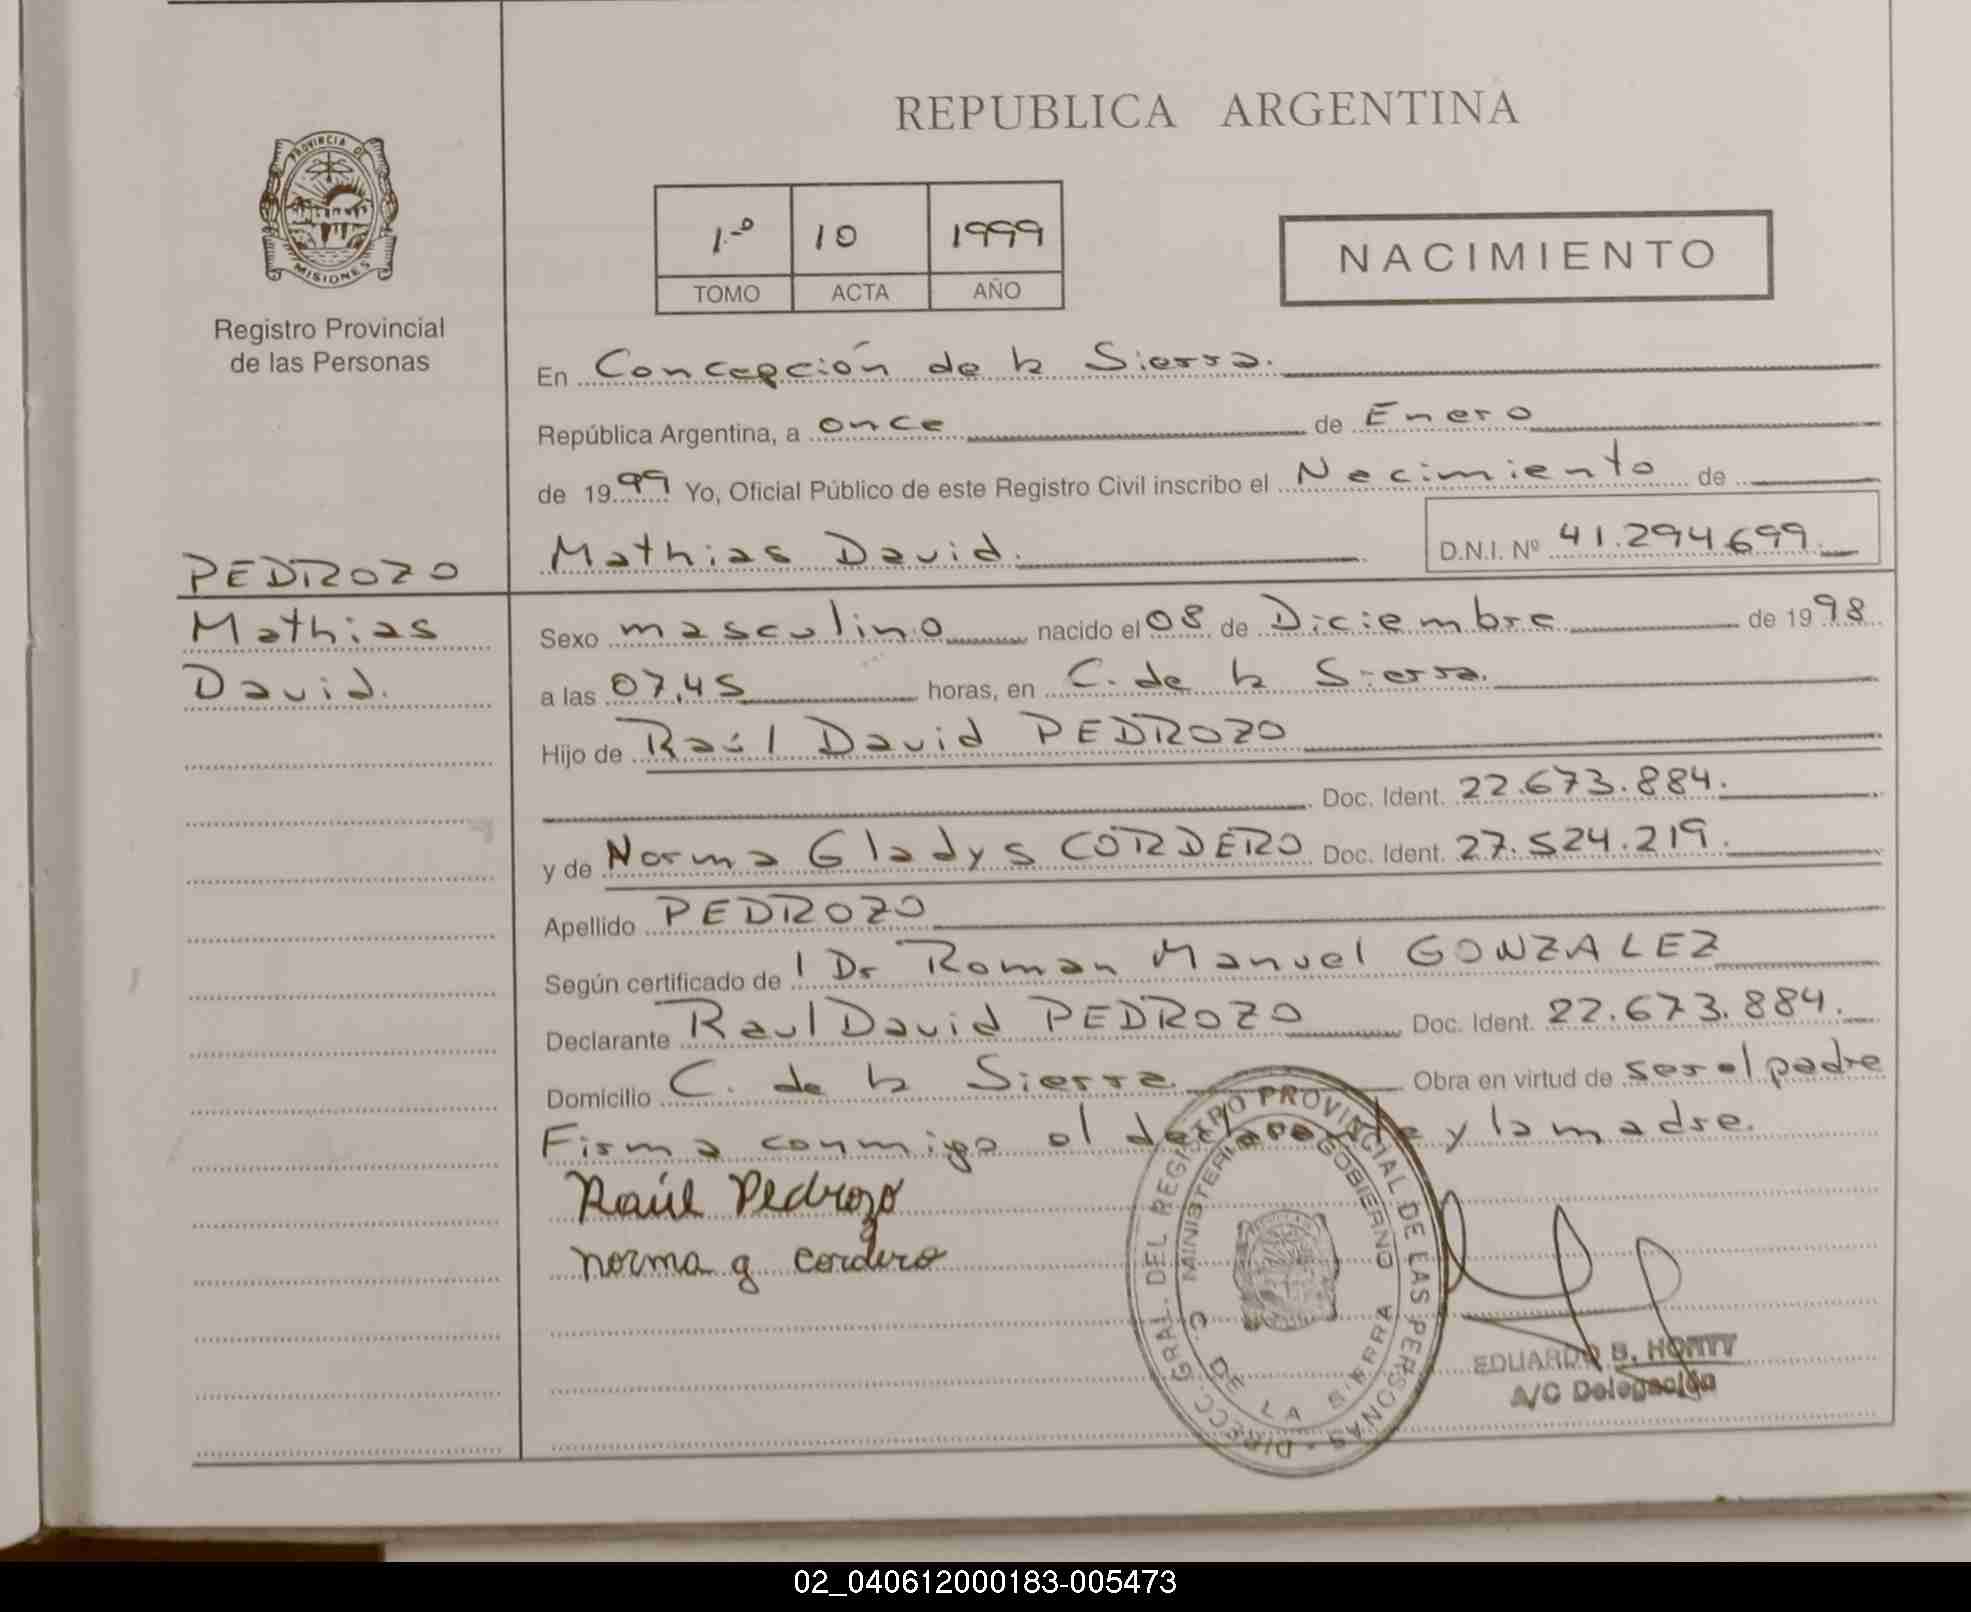 REPUBLICA ARGENTINA
PROVINCIA DE
MISIONES
Registro Provincial
de las Personas
1º 10 1999
TOMO ACTA AÑO
NACIMIENTO
En Concepción de la Sierra.
República Argentina, a once de Enero
de 1999 Yo, Oficial Público de este Registro Civil inscribo el Nacimiento de
Mathias David. D.N.I. Nº 41.294.699.
PEDROZO
Mathias
David.
Sexo masculino nacido el 08 de Diciembre de 1998
a las 07,45 horas, en C. de la Sierra.
Hijo de Raúl David PEDROZO
Doc. Ident. 22.673.884.
y de Norma Gladys CORDERO Doc. Ident. 27.524.219.
Apellido PEDROZO
Según certificado de l Dr Roman Manuel GONZALEZ
Declarante Raul David PEDROZO Doc. Ident. 22.673.884.
Domicilio C. de la Sierra. Obra en virtud de ser el padre
Firma conmigo el declarante y la madre.
Raúl Pedrozo
norma g cordero
DIRECC. GRAL. DEL REGISTRO PROVINCIAL DE LAS PERSONAS
MINISTERIO DE GOBIERNO
C. DE LA SIERRA
EDUARDO B.
A/C Delegación
02_040612000183-005473